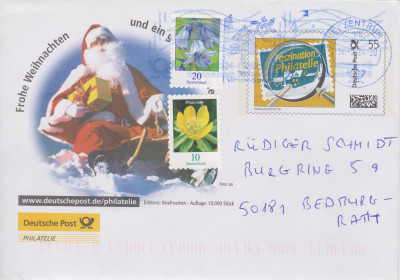 Frohe Weihnachten
und ein
20
Deutschland
10
Deutschland
Faszination
Philatelie
Deutsche Post
55
ZENTRUM
RÜDIGER SCHMIDT
BURGRING 59
50181 BEDBURG-
RATH
www.deutschepost.de/philatelie
Erlebnis: Briefmarken - Auflage: 10.000 Stück
Deutsche Post
PHILATELIE